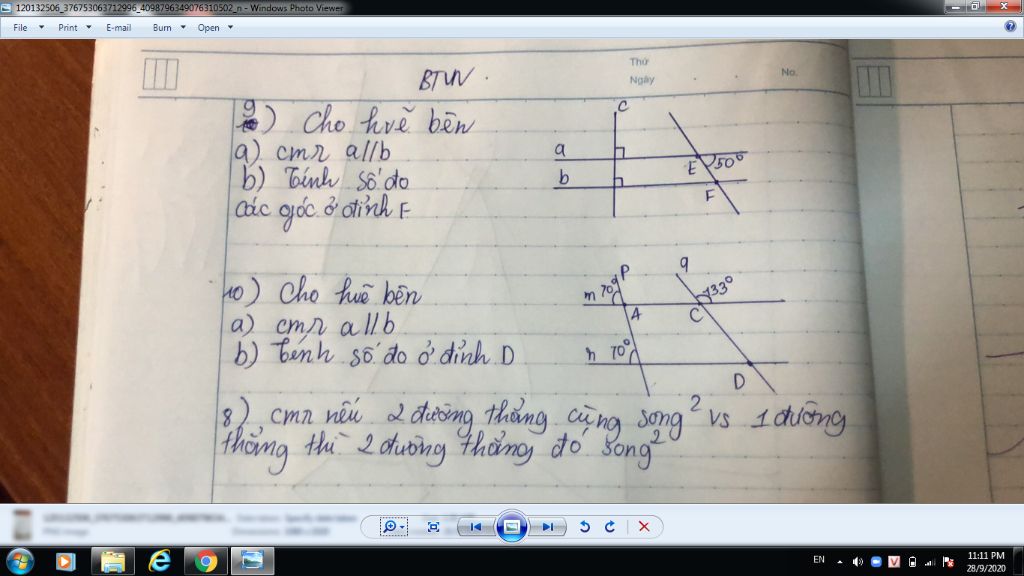 120132506_376753063712996_4098796349076310502_n - Windows Photo Viewer
File Print E-mail Burn Open
BTVN
Thứ
Ngày
No.
9) Cho hvẽ bên
a) cmr a//b
b) Tính số đo
các góc ở đỉnh F
c
a
b
E
50°
F
10) Cho hvẽ bên
a) cmr a//b
b) Tính số đo ở đỉnh D
P
q
m 70°
133°
A
C
n 70°
D
8) cmr nếu 2 đường thẳng cùng song² vs 1 đường
thẳng thì 2 đường thẳng đó song²
EN
11:11 PM
28/9/2020